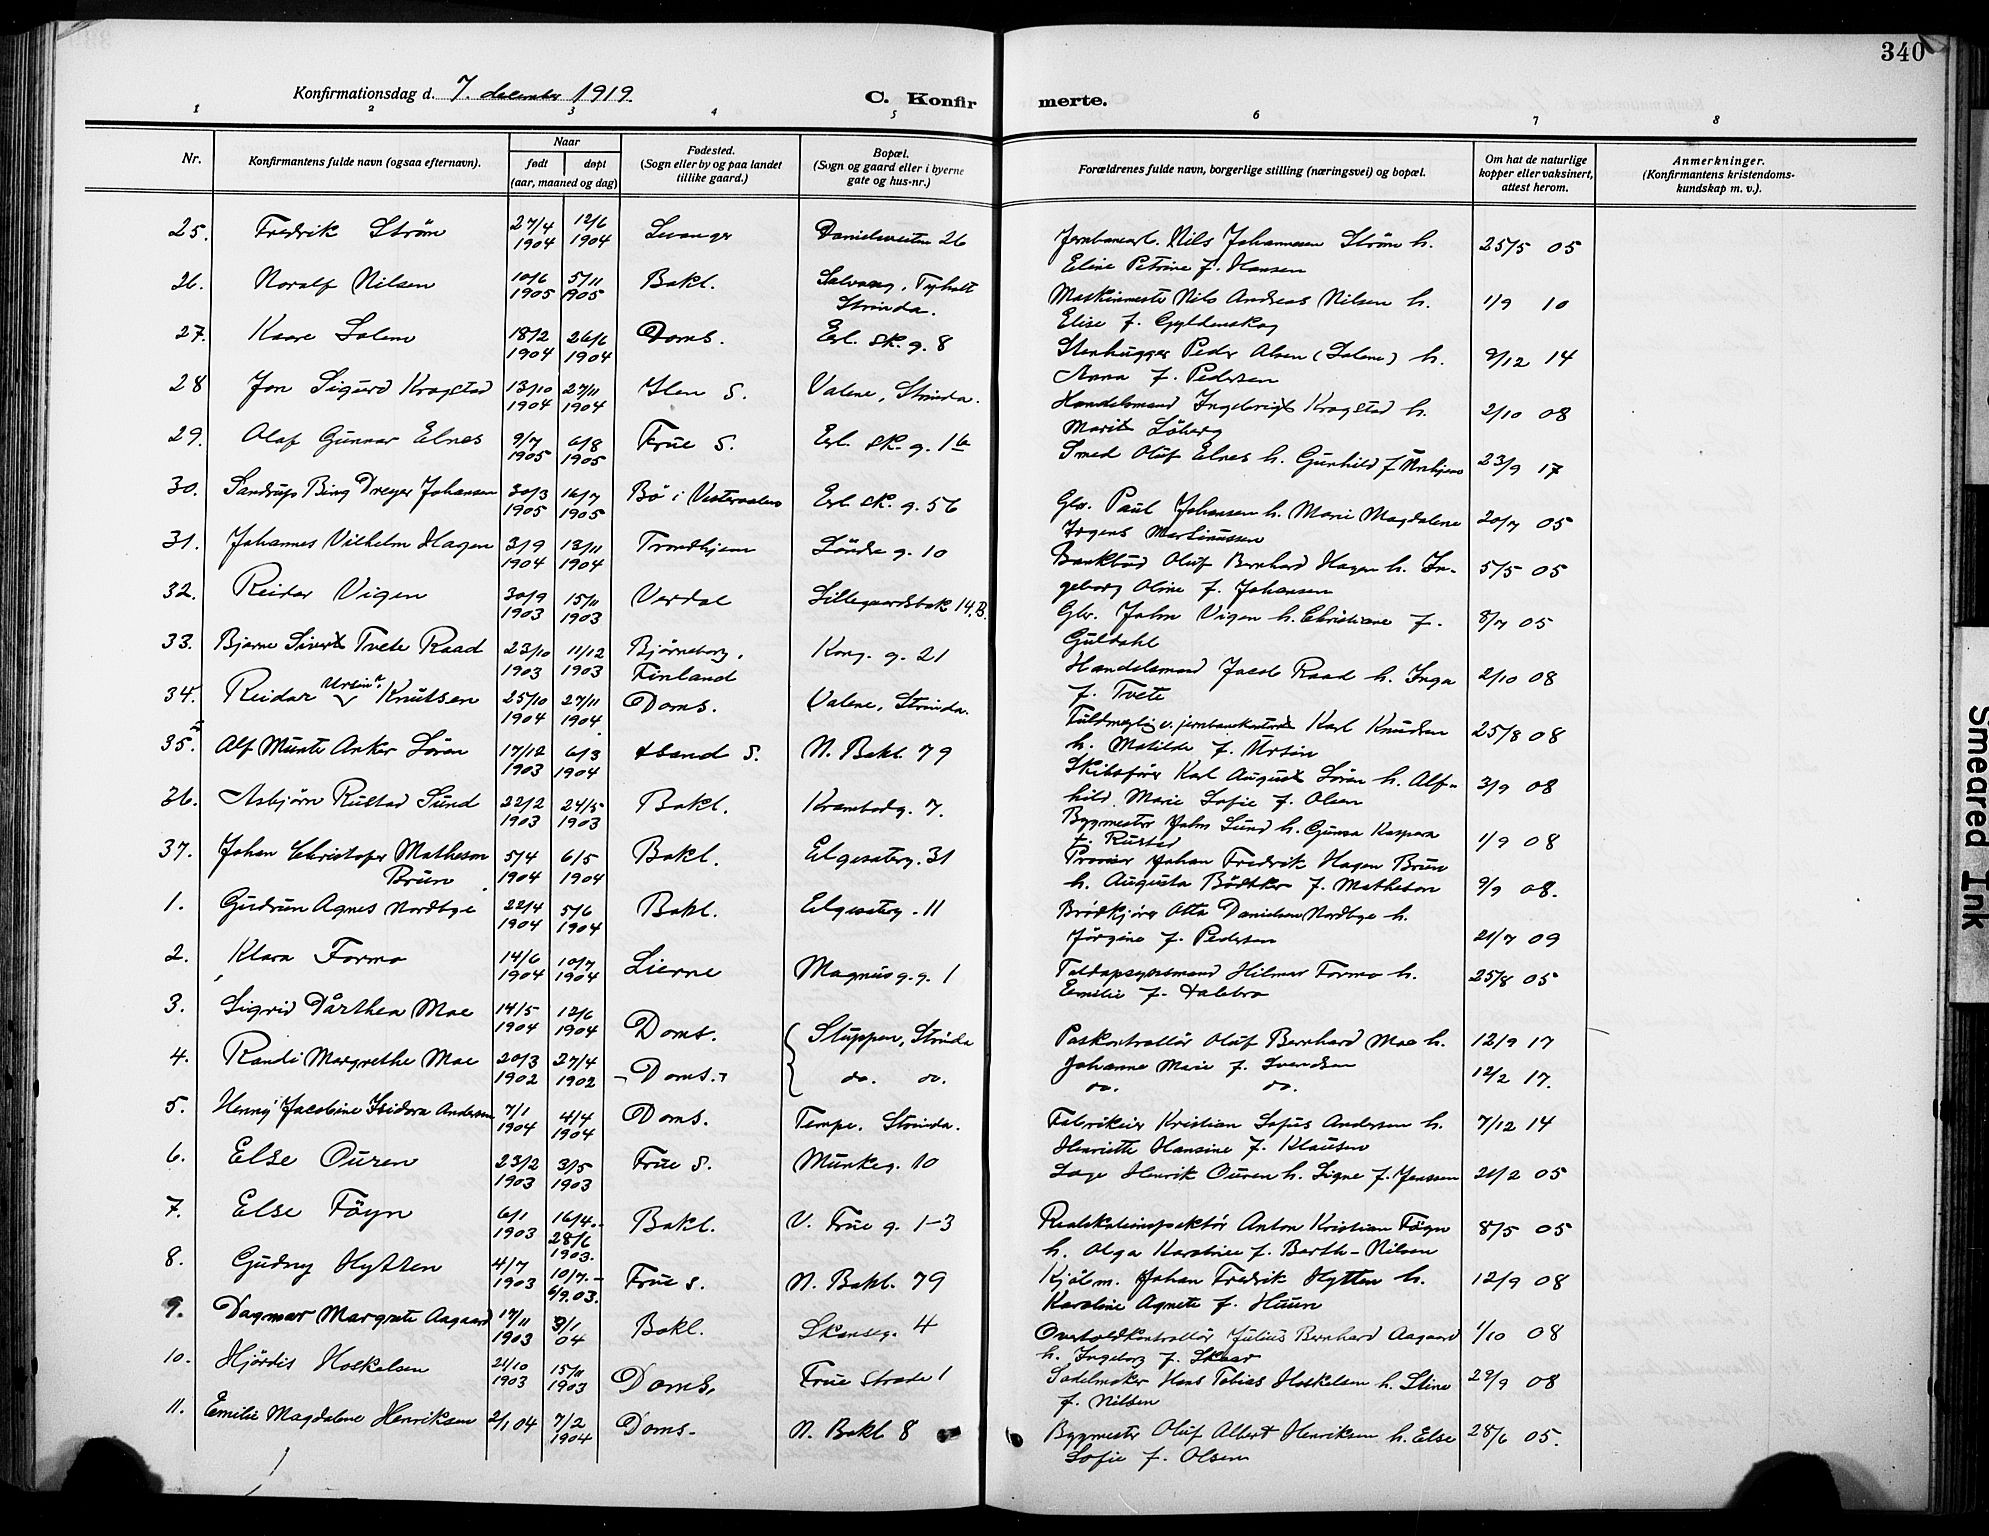 340
Konfirmationsdag d. 7. december 1919.
C. Konfirmerte.
1 2 3 4 5 6 7 8
Nr.
Konfirmantens fulde navn (ogsaa efternavn).
Naar
født døpt
(aar, maaned og dag)
Fødested.
(Sogn eller by og paa landet tillike gaard.)
Bopæl.
(Sogn og gaard eller i byerne gate og hus-nr.)
Forældrenes fulde navn, borgerlige stilling (næringsvei) og bopæl.
Om hat de naturlige kopper eller vaksinert, attest herom.
Anmerkninger.
(Konfirmantens kristendomskundskap m. v.).
25. Fredrik Strøm 27/4 1904 12/6 1904 Levanger 26 Nils Johannesen Strøm h. Eline Petrine f. Hansen 25/5 05
26. Noralf Nilsen 10/6 1905 5/11 1905 Bakl. Tyholt Strinda. Nils Andreas Nilsen h. Elise f. Gyldenskog 1/9 10
27. Kaare Solem 18/2 1904 26/6 1904 Doms. Erl. sk. g. 8 Stenhugger Peder Olsen (Solem) h. Anna f. Pedersen 9/12 14
28 Jon Sigurd Kragstad 13/10 1904 27/11 1904 Ilen S. Valene, Strinda. Handelsmand Ingebrigt Kragstad h. Marit Løberg 2/10 08
29. Olaf Gunnar Elnes 9/7 1905 6/8 1905 Frue S. Erl. sk. g. 16 Smed Oluf Elnes h. Gunhild f. 23/9 17
30. Sandrup Bing Dreyer Johansen 30/3 1905 16/7 1905 Bø i Vesteraalen Erl. sk. g. 56 Gbr. Paul Johansen h. Marie Magdalene Jrgens Martinussen 20/7 05
31. Johannes Vilhelm Hagen 3/9 1904 13/11 1904 Trondhjem Söndre g. 10 Bankbud Oluf Bernhard Hagen h. Ingeborg Oline f. Johansen 5/5 05
32. Reidar Vigen 30/9 1903 15/11 1903 Verdal Lillegaardsbak 14.B. Gbr. John Vigen h. Christiane f. Guldahl 8/7 05
33. Bjarne Sivert Tvete Raad 23/10 1903 11/12 1903 Bjørneborg, Finland Kong. g. 21 Handelsmand Jacob Raad h. Inga f. Tvete 2/10 08
34. Reidar Ursin Knutsen 25/10 1904 27/11 1904 Doms. Valene, Strinda. Karl Knudsen h. Matilde f. Ursin 25/8 08
35. Alf Munte Anker Søren 17/12 1903 6/3 1904 S. N. Bakl. 79 Skibsfører Karl August Søren h. Alfhild Marie Sofie f. Olsen 3/9 08
36. Asbjørn Rustad Sund 22/2 1903 24/5 1903 Bakl. Krambodg. 7. Bygmester John Sund h. Gunva Kaspara f. Rustad 1/9 08
37. Johan Christofer Matheson Brun 5/4 1904 6/5 1904 Bakl. Elgesaterg. 31 Johan Fredrik Hagen Brun h. Augusta Bödtker f. Matheson 9/9 08.
1. Gudrun Agnes Nordbye 22/4 1904 5/6 1904 Bakl. Elgesaterg. 11 Brödkjører Otto Danielsen Nordbye h. Jörgine f. Pedersen 21/7 09
2. Klara Formo 14/6 1904 10/7 1904 Lierne Magnus g. g. 1 Toldopsynsmand Hilmar Formo h. Emilie f. 25/8 05
3. Sigrid Dårthea Moe 14/5 1904 12/6 1904 Doms. Sluppen, Strinda Paskontrollør Oluf Bernhard Moe h. Johanne Marie f. Svendsen 12/9 17
4. Randi Margrethe Moe 20/3 1902 27/4 1902 - Doms. - do. do. do. do. 12/2 17.
5. Henny Jacobine Isidora Andersen 7/1 1904 4/4 1904 Doms. Tempe, Strinda. Fabrikeier Kristian Sofus Andersen h. Henriette Hansine f. Klausen 7/12 14
6. Else Ouren 23/2 1903 3/5 1903 Frue S. Munkeg. 10 Henrik Ouren h. Signe f. Jenssen 21/2 05
7. Else Föyn 6/1 1903 16/4 - 28/6 1903. Bakl. V. Frue g. 1-3 Anton Kristian Föyn h. Olga Karoline f. Barth-Nilsen 8/5 05
8. Gudny Hytten 4/7 1903 10/7 - 6/9.03. Frue s. N. Bakl. 79 Kjølm. Johan Fredrik Hytten h. Karoline Agnete f. Huun 12/9 08
9. Dagmar Margrete Aagaard 17/11 1903 3/1 04 Bakl. Skanseg. 4 Overtoldkontrollør Julius Bernhard Aagaard h. Ingeborg f. Skaar 1/10 08
10. Hjördis Hoskelsen 21/10 1903 15/11 1903 Doms. Frue Strade 1 Sadelmaker Hans Tobias Hoskelsen h. Stine f. Nilsen 29/9 08
11. Emilie Magdalene Henriksen 2/1 04 7/2 1904 Doms. N. Bakl 8 Bygmester Oluf Albert Henriksen h. Else Sofie f. Olsen 28/6 05.
Smeared Ink